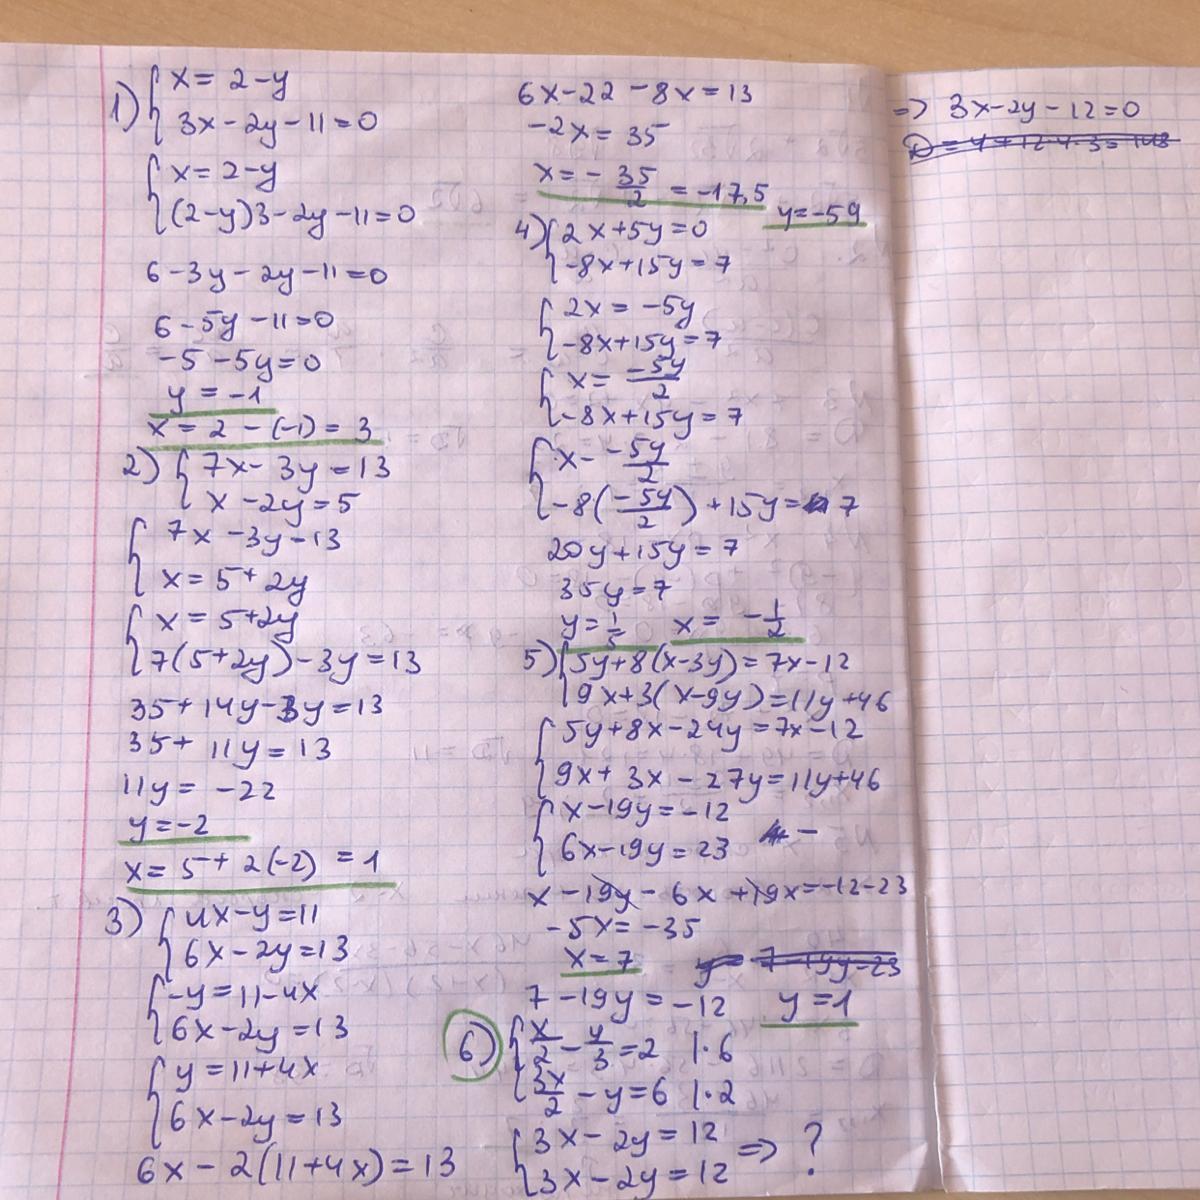 1) { x = 2 - y
3x - 2y - 11 = 0
{ x = 2 - y
(2 - y)3 - 2y - 11 = 0
6 - 3y - 2y - 11 = 0
6 - 5y - 11 = 0
-5 - 5y = 0
y = -1
x = 2 - (-1) = 3
2) { 7x - 3y = 13
x - 2y = 5
{ 7x - 3y - 13
x = 5 + 2y
{ x = 5 + 2y
7(5 + 2y) - 3y = 13
35 + 14y - 3y = 13
35 + 11y = 13
11y = -22
y = -2
x = 5 + 2(-2) = 1
3) { 4x - y = 11
6x - 2y = 13
{ -y = 11 - 4x
6x - 2y = 13
{ y = 11 + 4x
6x - 2y = 13
6x - 2(11 + 4x) = 13
6x - 22 - 8x = 13
-2x = 35
x = - 35/2 = -17,5
y = -59
4) { 2x + 5y = 0
-8x + 15y = 7
{ 2x = -5y
-8x + 15y = 7
{ x = -5y/2
-8x + 15y = 7
{ x - -5y/2
-8(-5y/2) + 15y = 7
20y + 15y = 7
35y = 7
y = 1/5 x = - 1/2
5) { 5y + 8(x - 3y) = 7x - 12
9x + 3(x - 9y) = 11y + 46
{ 5y + 8x - 24y = 7x - 12
9x + 3x - 27y = 11y + 46
{ x - 19y = -12
6x - 19y = 23 -
x - 19y - 6x + 19x = -12 - 23
-5x = -35
x = 7
7 - 19y = -12 y = 1
6) { x/2 - y/3 = 2 | · 6
3x/2 - y = 6 | · 2
{ 3x - 2y = 12
3x - 2y = 12 => ?
=> 3x - 2y - 12 = 0